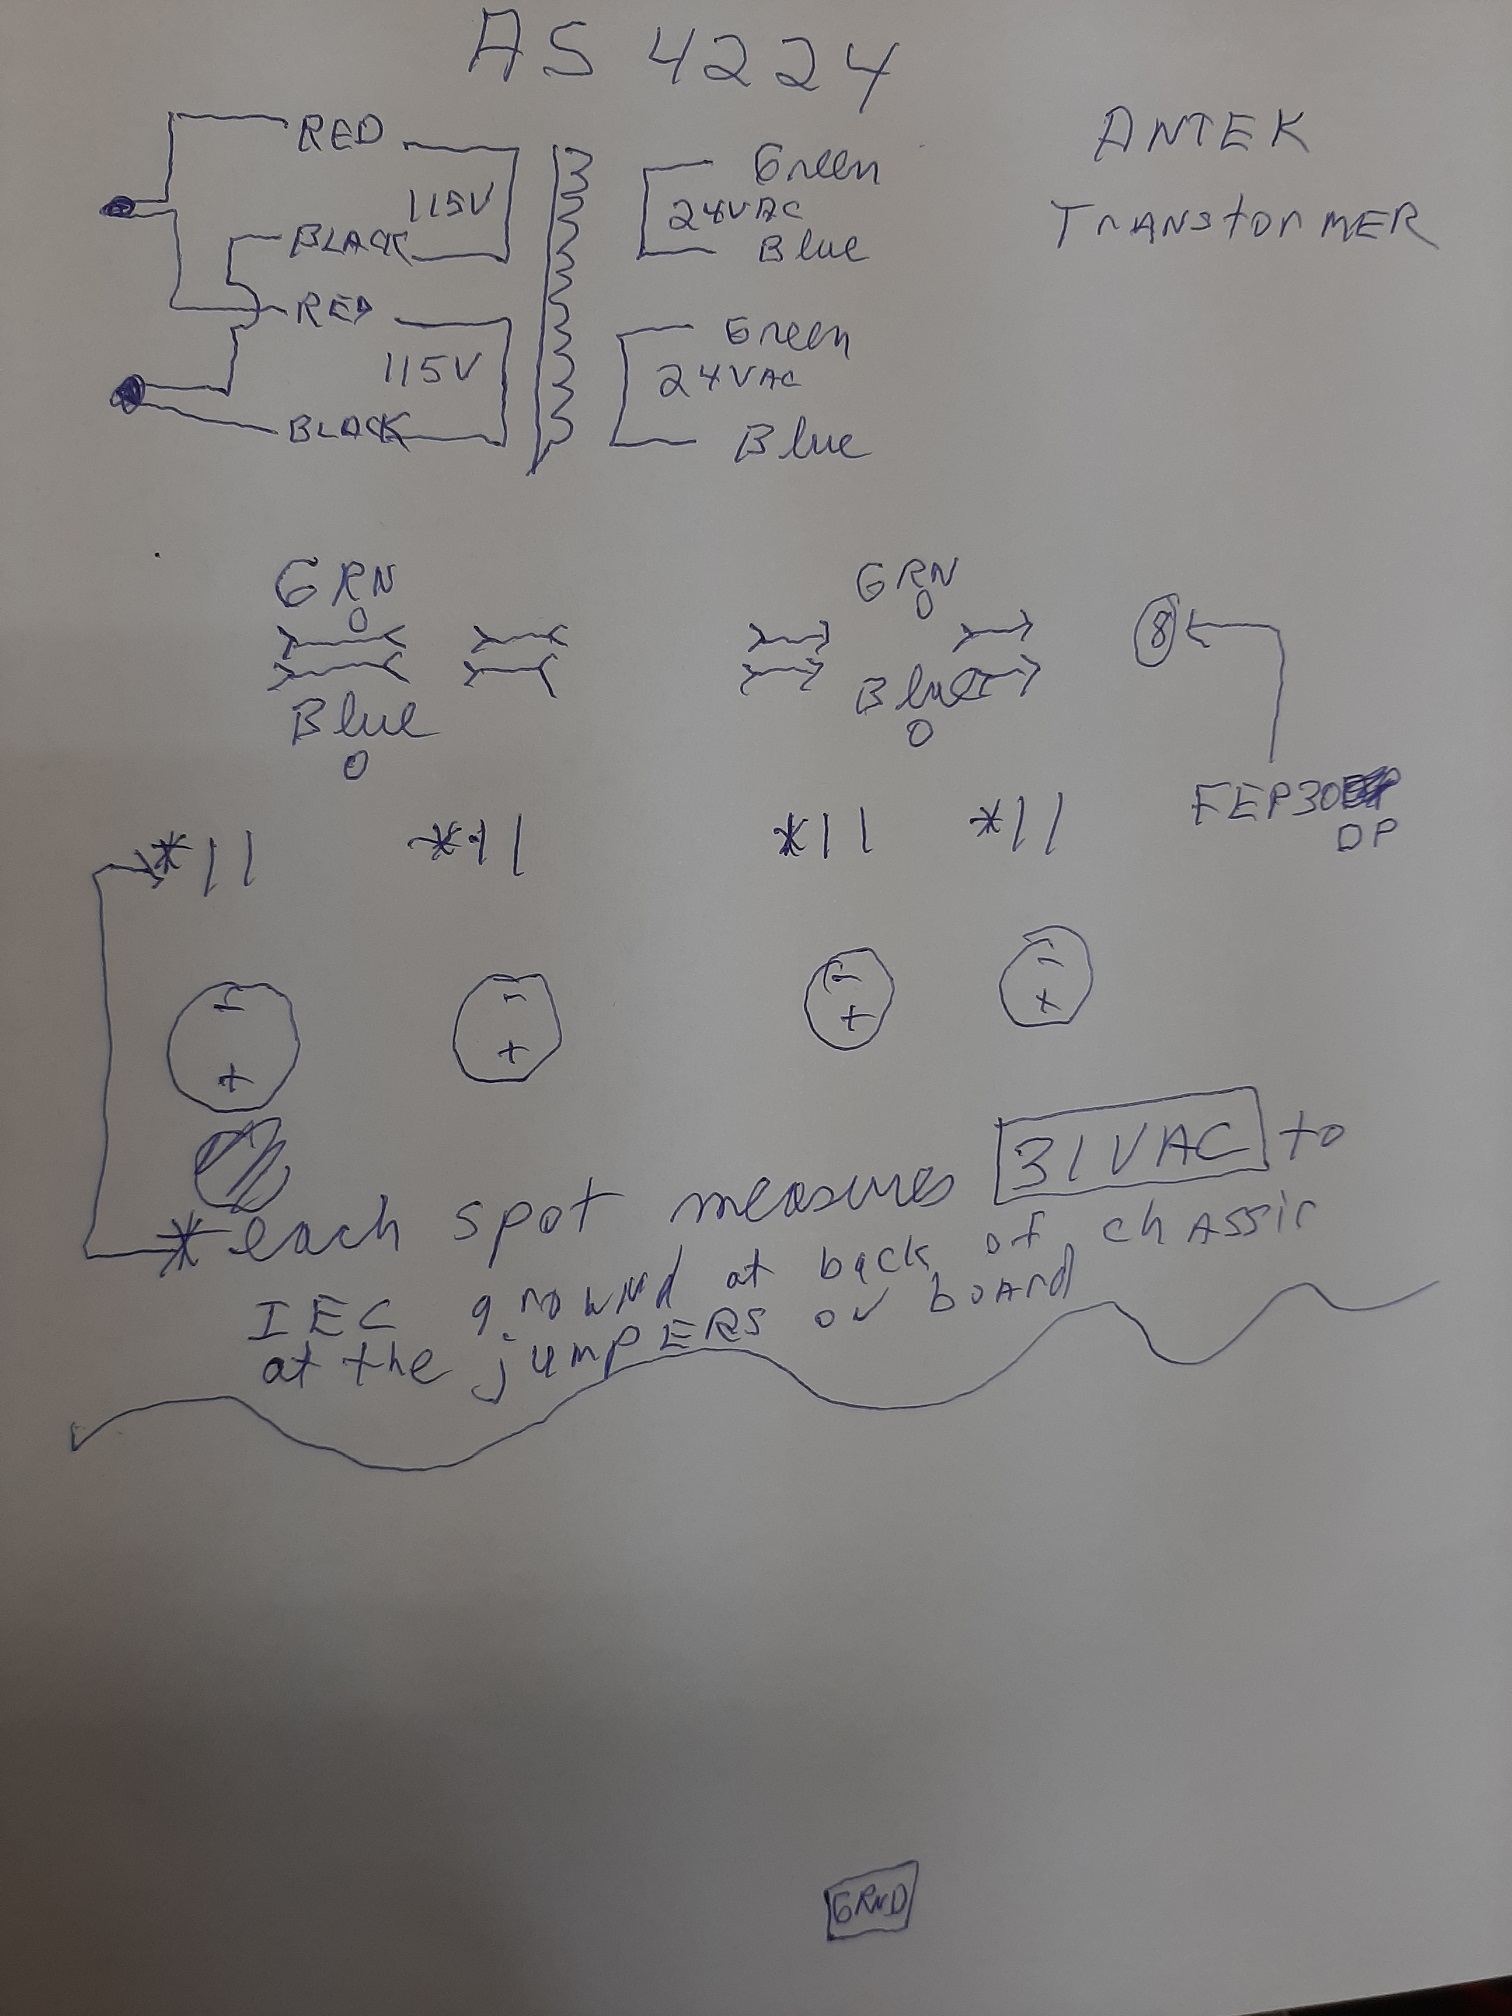 AS 4224
ANTEK
TRANSfORMER
RED
115V
BLACK
RED
115V
BLACK
Green
24VAC
Blue
Green
24VAC
Blue
GRN
0
Blue
0
GRN
0
Blue
0
8
FEP30
DP
*11
*11
*11
*11
-
+
-
+
-
+
-
+
* each spot measures 31VAC to
IEC ground at back of chASSIC
at the jumpERS ON board
GRND